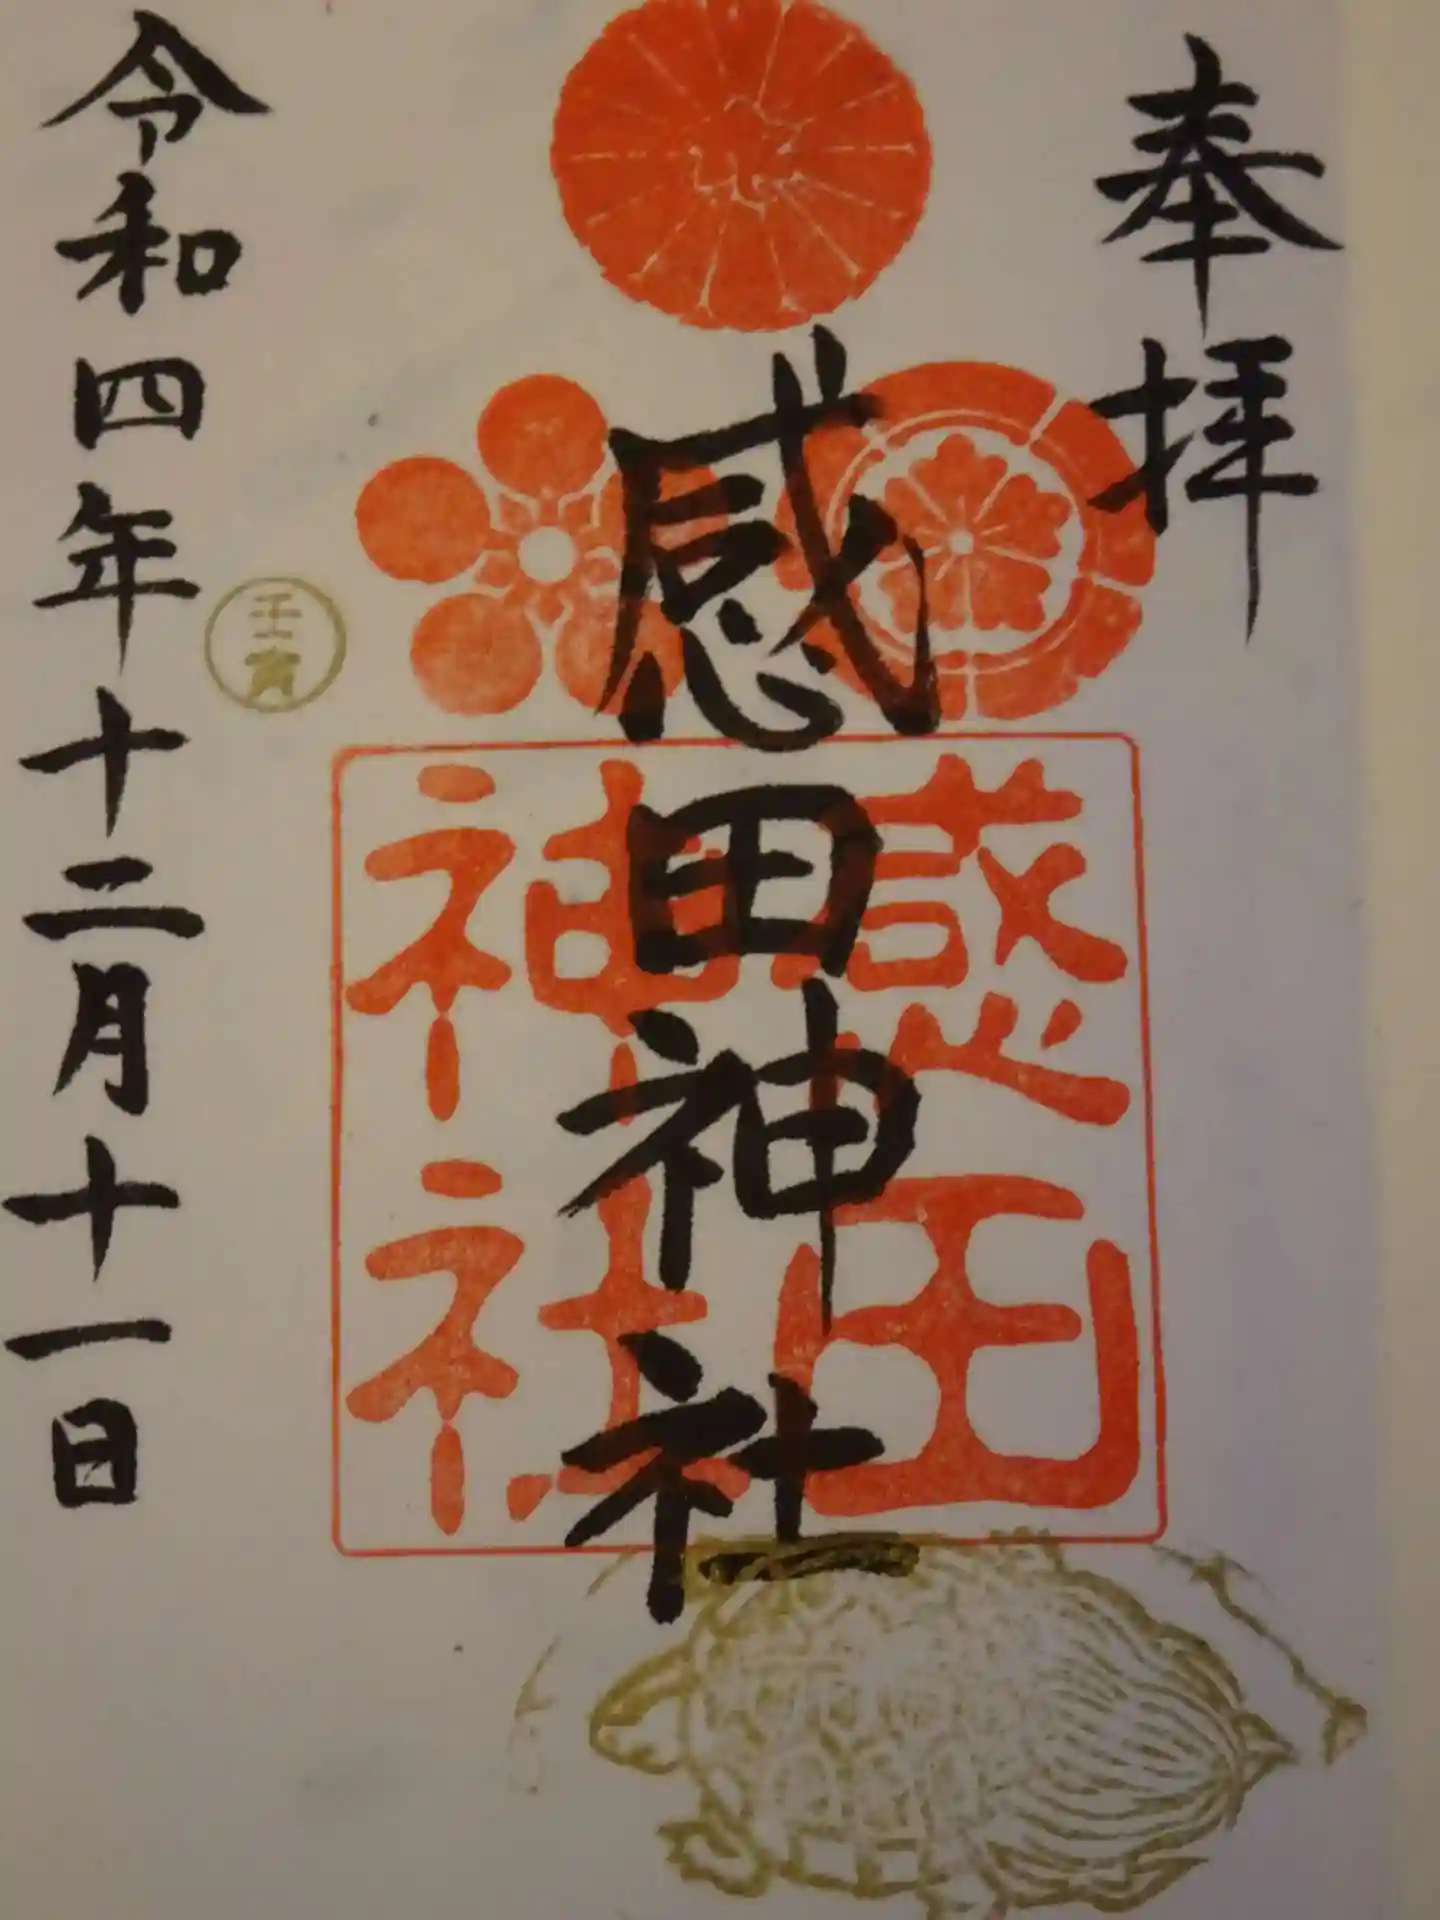 奉拝
感田神社
感田
神社
壬寅
令和四年十二月十一日